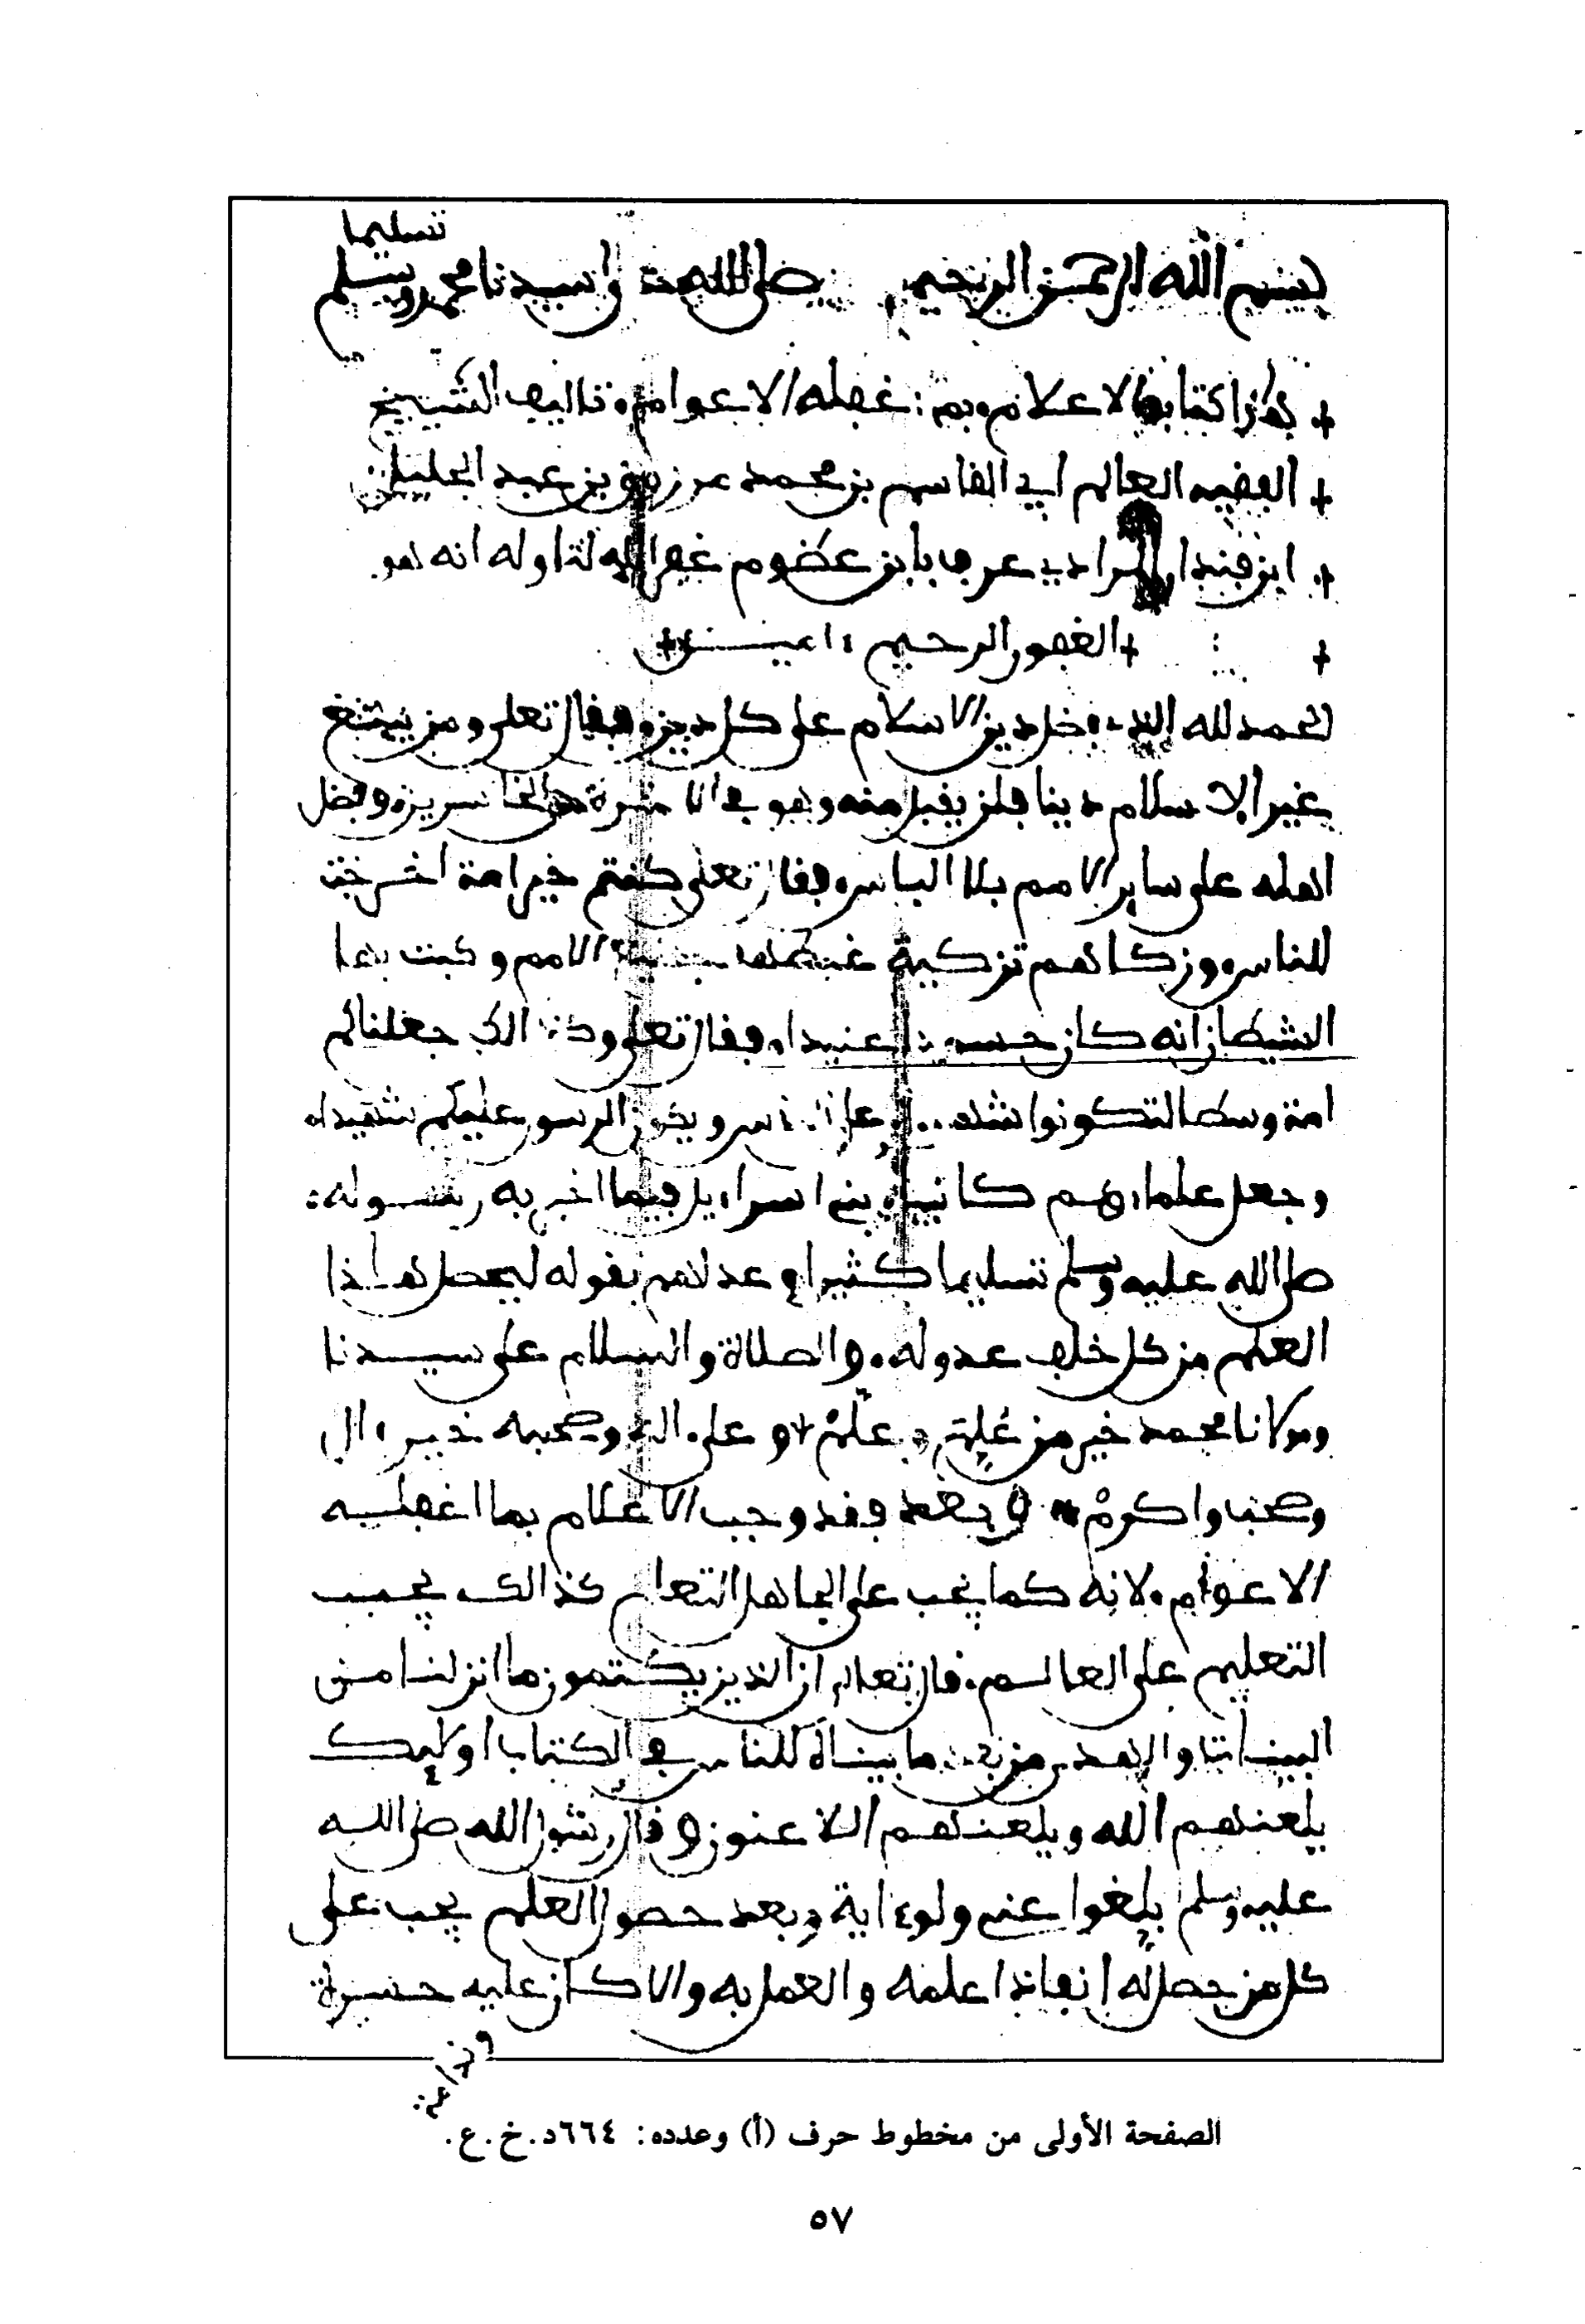 تسليما
بسم الله الرحمن الرحيم صلى الله على سيدنا محمد وسلم
هذا كتاب الاعلام بما غفله الاعوام تاليف الشيخ
الفقيه العالم ابي القاسم بن محمد مرزوق بن عبد الجليل
ابن فندار المرادي عرف بابن عضوم غفر الله له اوله انه هو
الغفور الرحيم امين
الحمد لله الذي فضل دين الاسلام على كل دين فقال تعلى ومن يبتغ
غير الاسلام دينا فلن يقبل منه وهو في الاخرة من الخاسرين وفضل
اهله على ساير الامم بلا الباس فقال تعلى كنتم خير امة اخرجت
للناس وزكاهم تزكية غبطها الامم وكبت بها
الشيطان انه كان عنيدا فقال تعلى وكذالك جعلناكم
امة وسطا لتكونوا شهدا على الناس ويكون الرسول عليكم شهيدا
وجعل علماءهم كانبياء بني اسراءيل فيما اخبر به رسوله
صلى الله عليه وسلم تسليما كثيرا وعدلهم بقوله ليحمل هاذا
العلم من كل خلف عدوله والصلاة والسلام على سيدنا
ومولانا محمد خير من عُلِّم وعلّم وعلى اله وصحبه خير ءال
وصحب واكرم وبعد فقد وجب الاعلام بما اغفله
الاعوام لانه كما يجب على الجاهل التعلم كذالك يجب
التعليم على العالم قال تعلى ان الذين يكتمون ما انزلنا من
البينات والهدى من بعد ما بيناه للناس في الكتاب اولئك
يلعنهم الله ويلعنهم اللاعنون وقال رسول الله صلى الله
عليه وسلم بلغوا عني ولو ءاية وبعد حصول العلم يجب على
كل من حصل له انفاذ علمه والعمل به والا كان عليه حسرة
الصفحة الأولى من مخطوط حرف (أ) وعدده: ٦٦٤د.خ.ع.
٥٧